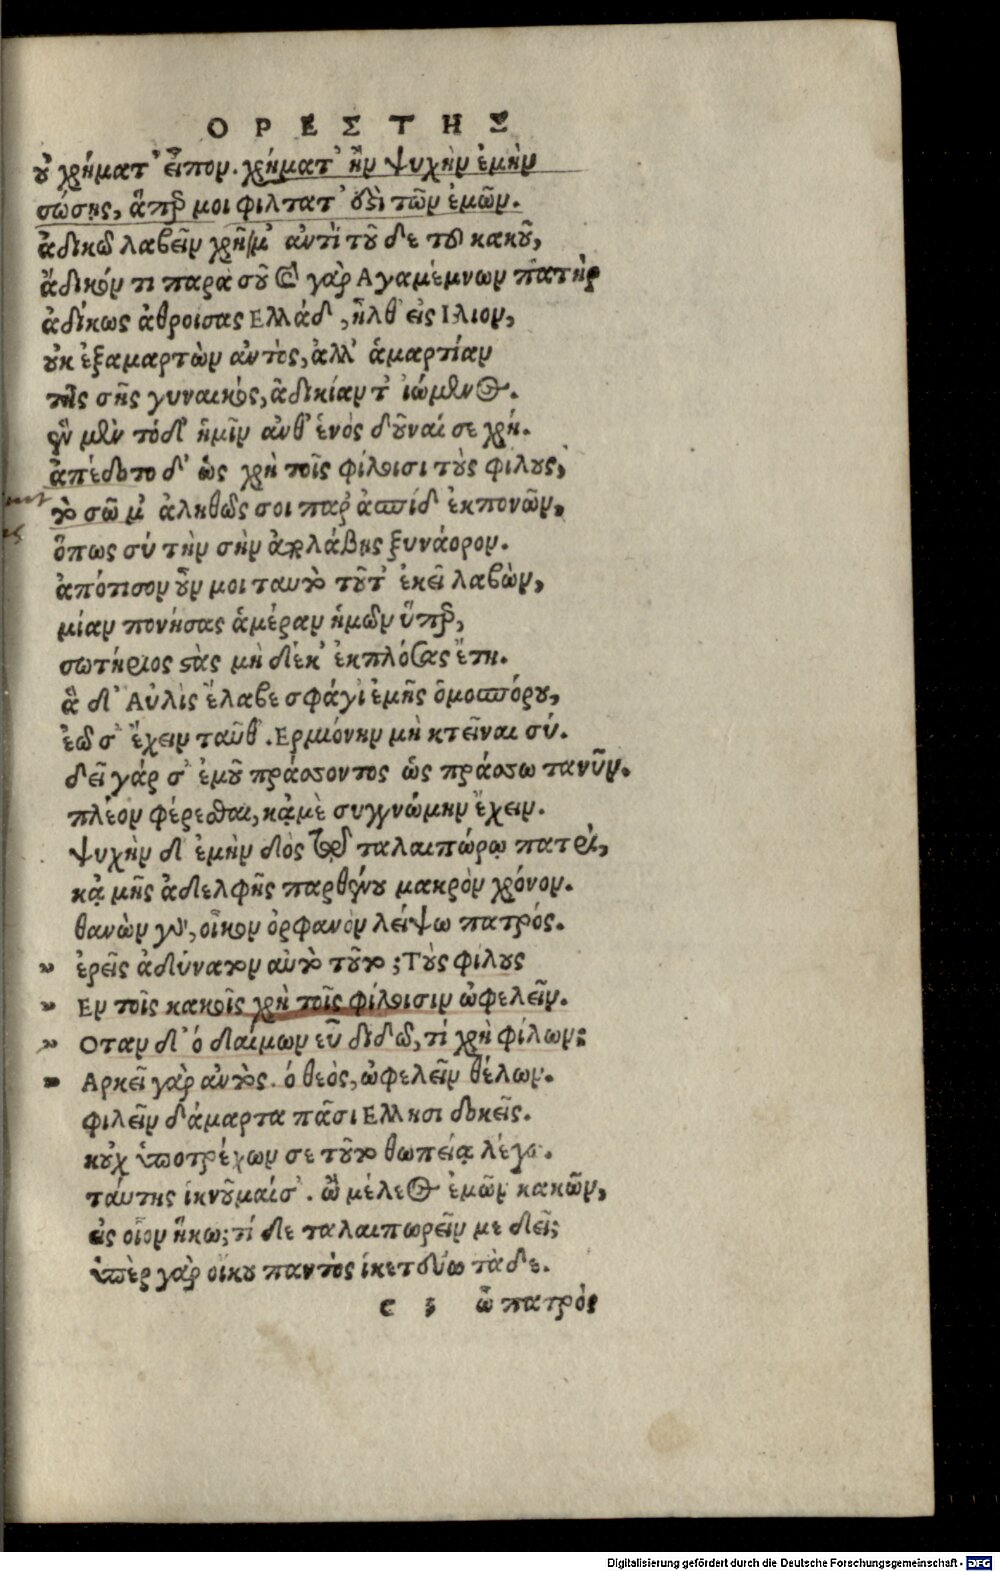 ΟΡΕΣΤΗΣ
οὐ χρήματ' εἶπον. χρήματ' ἢν ψυχὴν ἐμὴν
σώσῃς, ἅπερ μοι φίλτατ' ὀστὶ τῶν ἐμῶν.
ἀδικῶ λαβεῖν χρή μ' ἀντὶ τοῦδε τοῦ κακοῦ,
ἄδικόν τι παρὰ σοῦ καὶ γὰρ Αγαμέμνων πατὴρ
ἀδίκως ἀθροίσας Ελλάδ', ἦλθ' εἰς Ιλιον,
οὐκ ἐξαμαρτὼν αὐτὸς, ἀλλ' ἁμαρτίαν
τῆς σῆς γυναικός, ἀδικίαν τ' ἰώμενος.
ἓν μὲν τόδ' ἡμῖν ἀνθ' ἑνὸς δοῦναί σε χρή.
ἀπέδοτο δ' ὡς χρὴ τοῖς φίλοισι τοὺς φίλους,
τὸ σῶμ' ἀληθῶς σοι παρ' ἀσπίδ' ἐκπονῶν,
ὅπως σύ τὴν σὴν ἀπολάβῃς ξυνάορον.
ἀπότισον οὖν μοι ταυτὸ τοῦτ' ἐκεῖ λαβὼν,
μίαν πονήσας ἁμέραν ἡμῶν ὕπερ,
σωτήριος στὰς μὴ δέκ' ἐκπλήσας ἔτη.
ἃ δ' Αὐλὶς ἔλαβε σφάγι' ἐμῆς ὁμοσπόρου,
ἐῶ σ' ἔχειν ταῦθ'. Ερμιόνην μὴ κτεῖναι σύ.
δεῖ γάρ σ' ἐμοῦ πράσσοντος ὡς πράσσω τανῦν.
πλέον φέρεσθαι, κᾀμὲ συγγνώμην ἔχειν.
ψυχὴν δ' ἐμὴν δὸς τῷ ταλαιπώρῳ πατρὶ,
κᾀμῆς ἀδελφῆς παρθένου μακρὸν χρόνον.
θανὼν γὰρ, οἶκον ὀρφανὸν λείψω πατρός.
» ἐρεῖς ἀδύνατον αὐτὸ τοῦτο; Τοὺς φίλους
» Εν τοῖς κακοῖς χρὴ τοῖς φίλοισιν ὠφελεῖν.
» Οταν δ' ὁ δαίμων εὖ διδῷ, τί χρὴ φίλων;
» Αρκεῖ γὰρ αὐτὸς. ὁ θεὸς, ὠφελεῖν θέλων.
φιλεῖν δάμαρτα πᾶσι Ελλησι δοκεῖς.
κοὐχ ὑποτρέχων σε τοῦτο θωπείᾳ λέγω.
ταύτης ἱκνοῦμαί σ'. ὢ μέλεος ἐμῶν κακῶν,
εἰς οἷον ἥκω; τί δε ταλαιπωρεῖν με δεῖ;
ὑπὲρ γὰρ οἴκου παντὸς ἱκετεύω τάδε.
c 3 ὦ πατρὸς
Digitalisierung gefördert durch die Deutsche Forschungsgemeinschaft - DFG